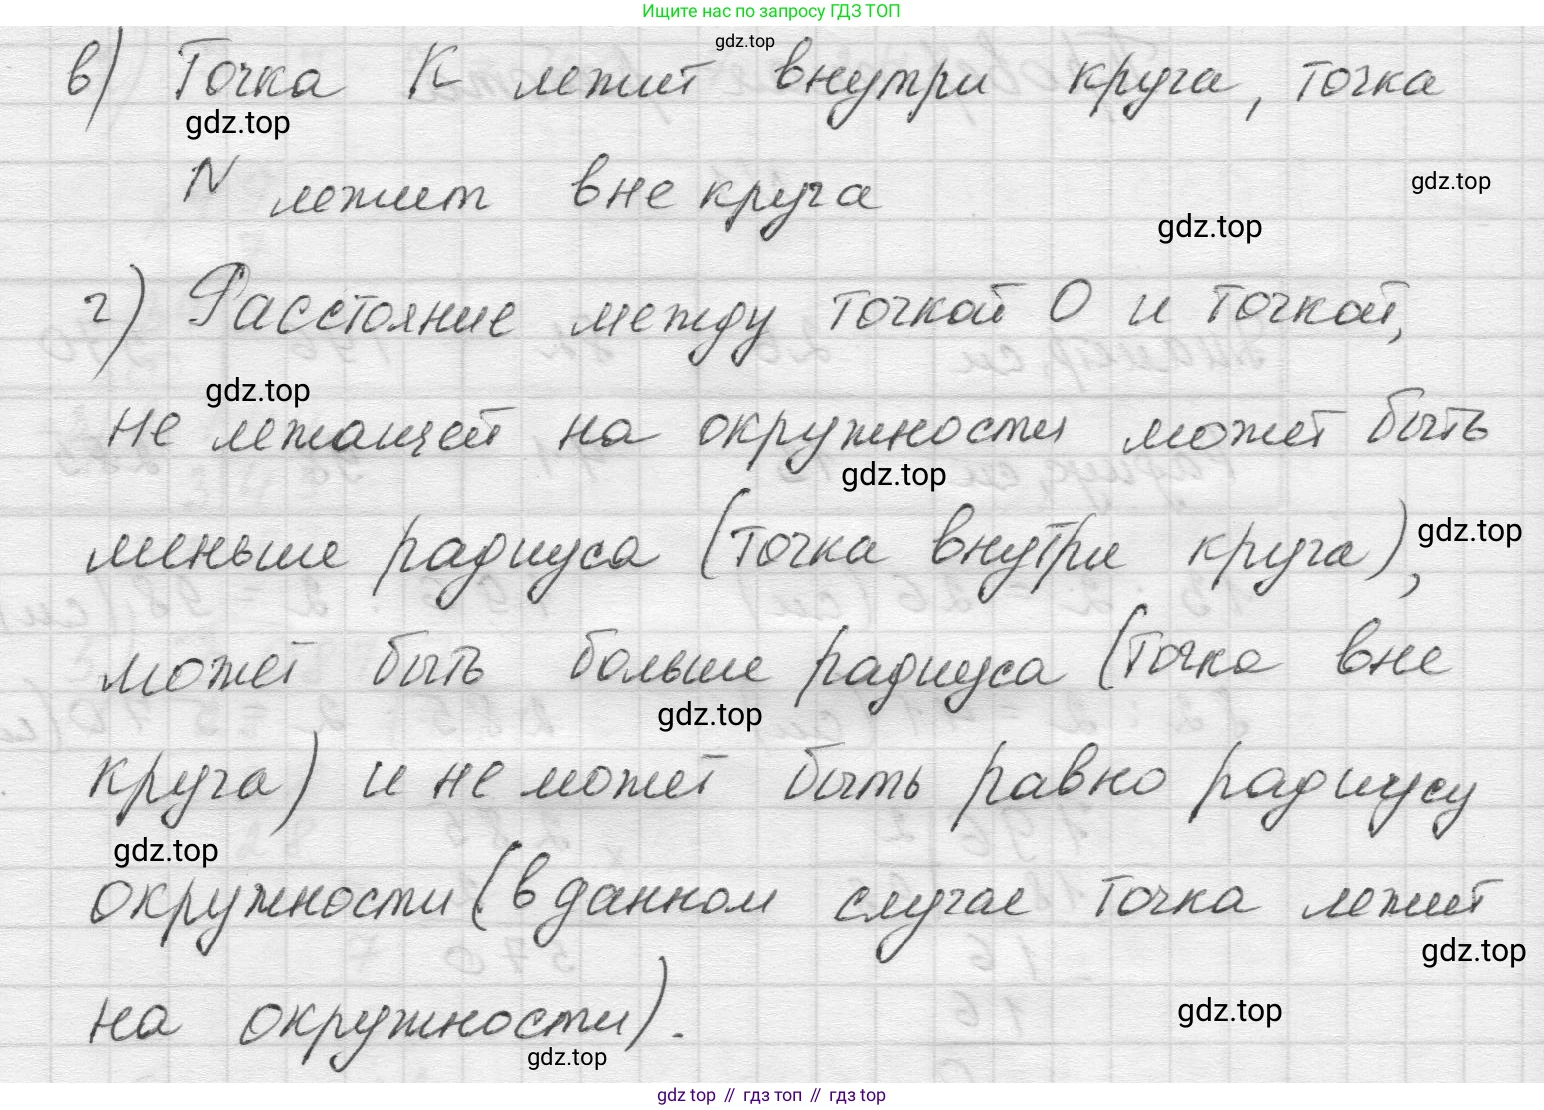 Ищите нас по запросу ГДЗ ТОП
gdz.top
в) Точка К лежит внутри круга, точка
gdz.top
N лежит вне круга
gdz.top
gdz.top
г) Расстояние между точкой О и точкой,
gdz.top
не лежащей на окружности может быть
gdz.top
меньше радиуса (точка внутри круга),
gdz.top
может быть больше радиуса (точка вне
gdz.top
круга) и не может быть равно радиусу
gdz.top
окружности (в данном случае точка лежит
gdz.top
на окружности).
gdz.top
gdz.top
gdz top // гдз топ // гдз top